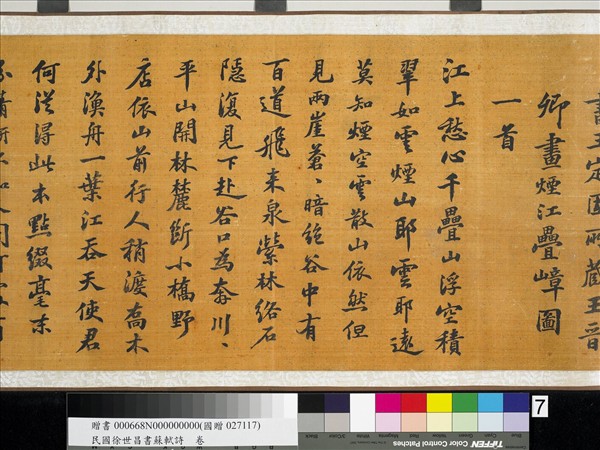 書王定國所藏王晉
卿畫煙江疊嶂圖
一首
江上愁心千疊山浮空積
翠如雲煙山耶雲耶遠
莫知煙空雲散山依然但
見兩崖蒼〻暗絕谷中有
百道飛來泉縈林絡石
隱復見下赴谷口為奔川〻
平山開林麓斷小橋野
店依山前行人稍渡喬木
外漁舟一葉江吞天使君
何從得此本點綴毫末
分清妍不知人間何處有
7
贈書 000668N000000000(國贈 027117)
民國徐世昌書蘇軾詩 卷
Black
3/Color
White
Magenta
Red
Yellow
Green
Cyan
Blue
TIFFEN Color Control Patches